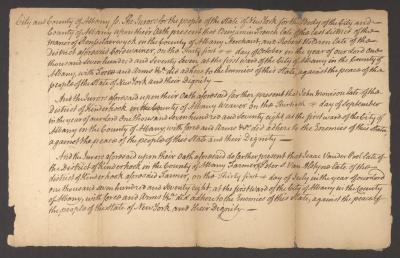 City and County of Albany ss The Jurors for the people of the State of New York for the Body of the City and
County of Albany upon their Oath present that Benjamin French late of the East district of the
manor of Rensselaerwyck in the County of Albany and Robert late of the
district aforesaid on the Thirty first day of October in the year of our Lord one
thousand seven hundred and Seventy Seven, at the first ward of the City of Albany in the County of
Albany, with Force and Arms &c. did adhere to the Enemies of this State, against the peace of the
people of the State of New York and their Dignity —
And the Jurors aforesaid upon their Oath aforesaid further present that John late of the
district of Kinderhook in the County of Albany Weaver on the day of September
in the year of our Lord one thousand seven hundred and seventy eight at the first ward of the City of
Albany in the County of Albany, with force and Arms &c. did adhere to the Enemies of this State
against the peace of the people of this State and their Dignity —
And the Jurors aforesaid upon their Oath aforesaid do further present that Isaac Vander Pool late of
the district of Kinderhook in the County of Albany Farmer & Peter Van late of the
district of Kinderhook aforesaid Farmer, on the Thirty first day of July in the year of our Lord
one thousand seven hundred and Seventy eight, at the first ward of the City of Albany in the County
of Albany, with force and Arms &c. did adhere to the Enemies of this State, against the peace of
the people of the State of New York and their Dignity —